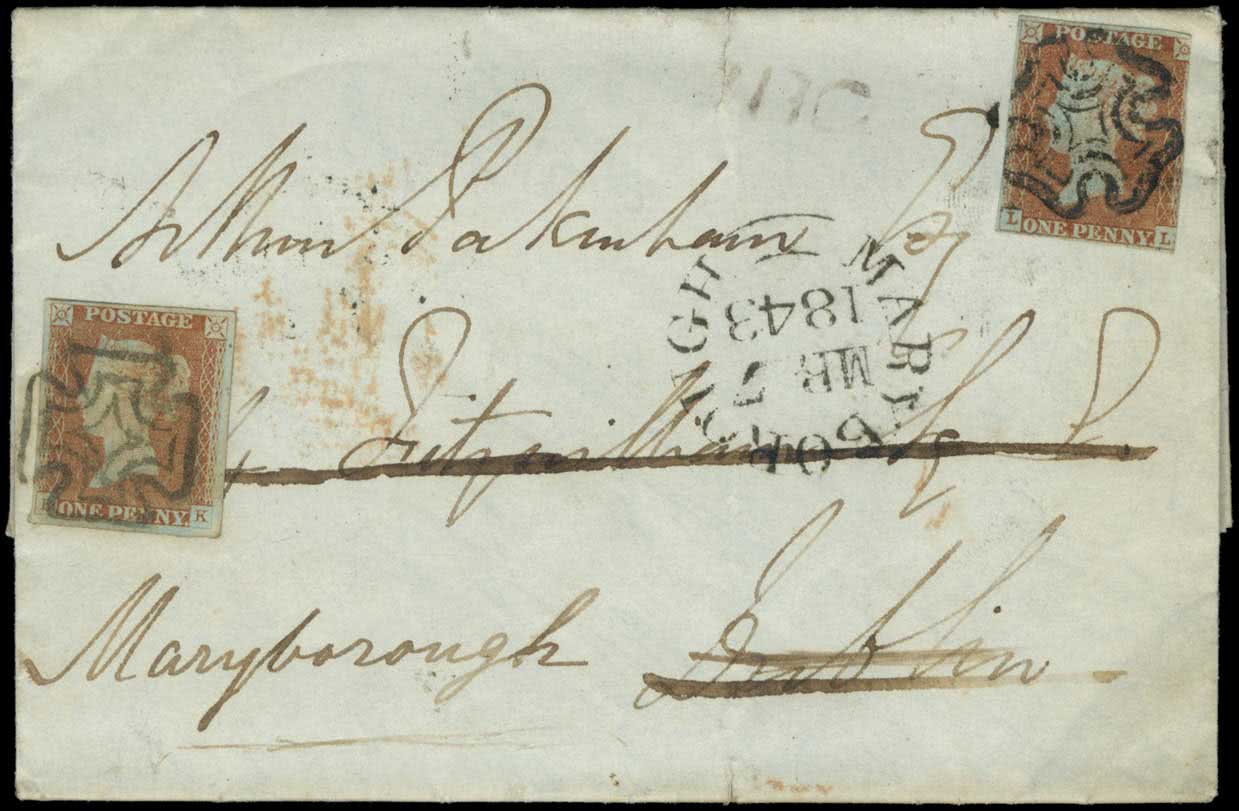 POSTAGE
L ONE PENNY L
Arthur Pakenham Esq
MARYBOROUGH
1843
MR 7
POSTAGE
ONE PENNY K
4 Fitzwilliam Sq
Maryborough Dublin